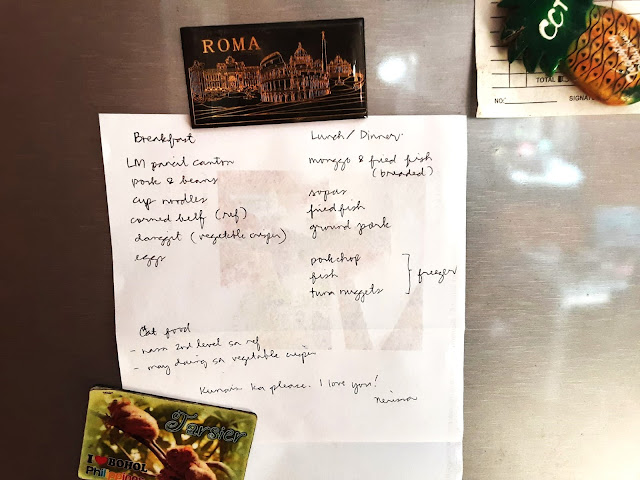 ROMA
CCT
TOTAL
NO:
SIGNAT
Breakfast
LM pancit canton
pork & beans
cup noodles
corned beef (ref)
danggit (vegetable crisper)
eggs
Lunch/Dinner
monggo & fried fish
(breaded)
sopas
fried fish
ground pork
porkchop
fish
tuna nuggets
freezer
Cat food
- nasa 2nd level sa ref
- may daing sa vegetable crisper
Kumain ka please. I love you!
Nerissa
Tarsier
I BOHOL
Philippines